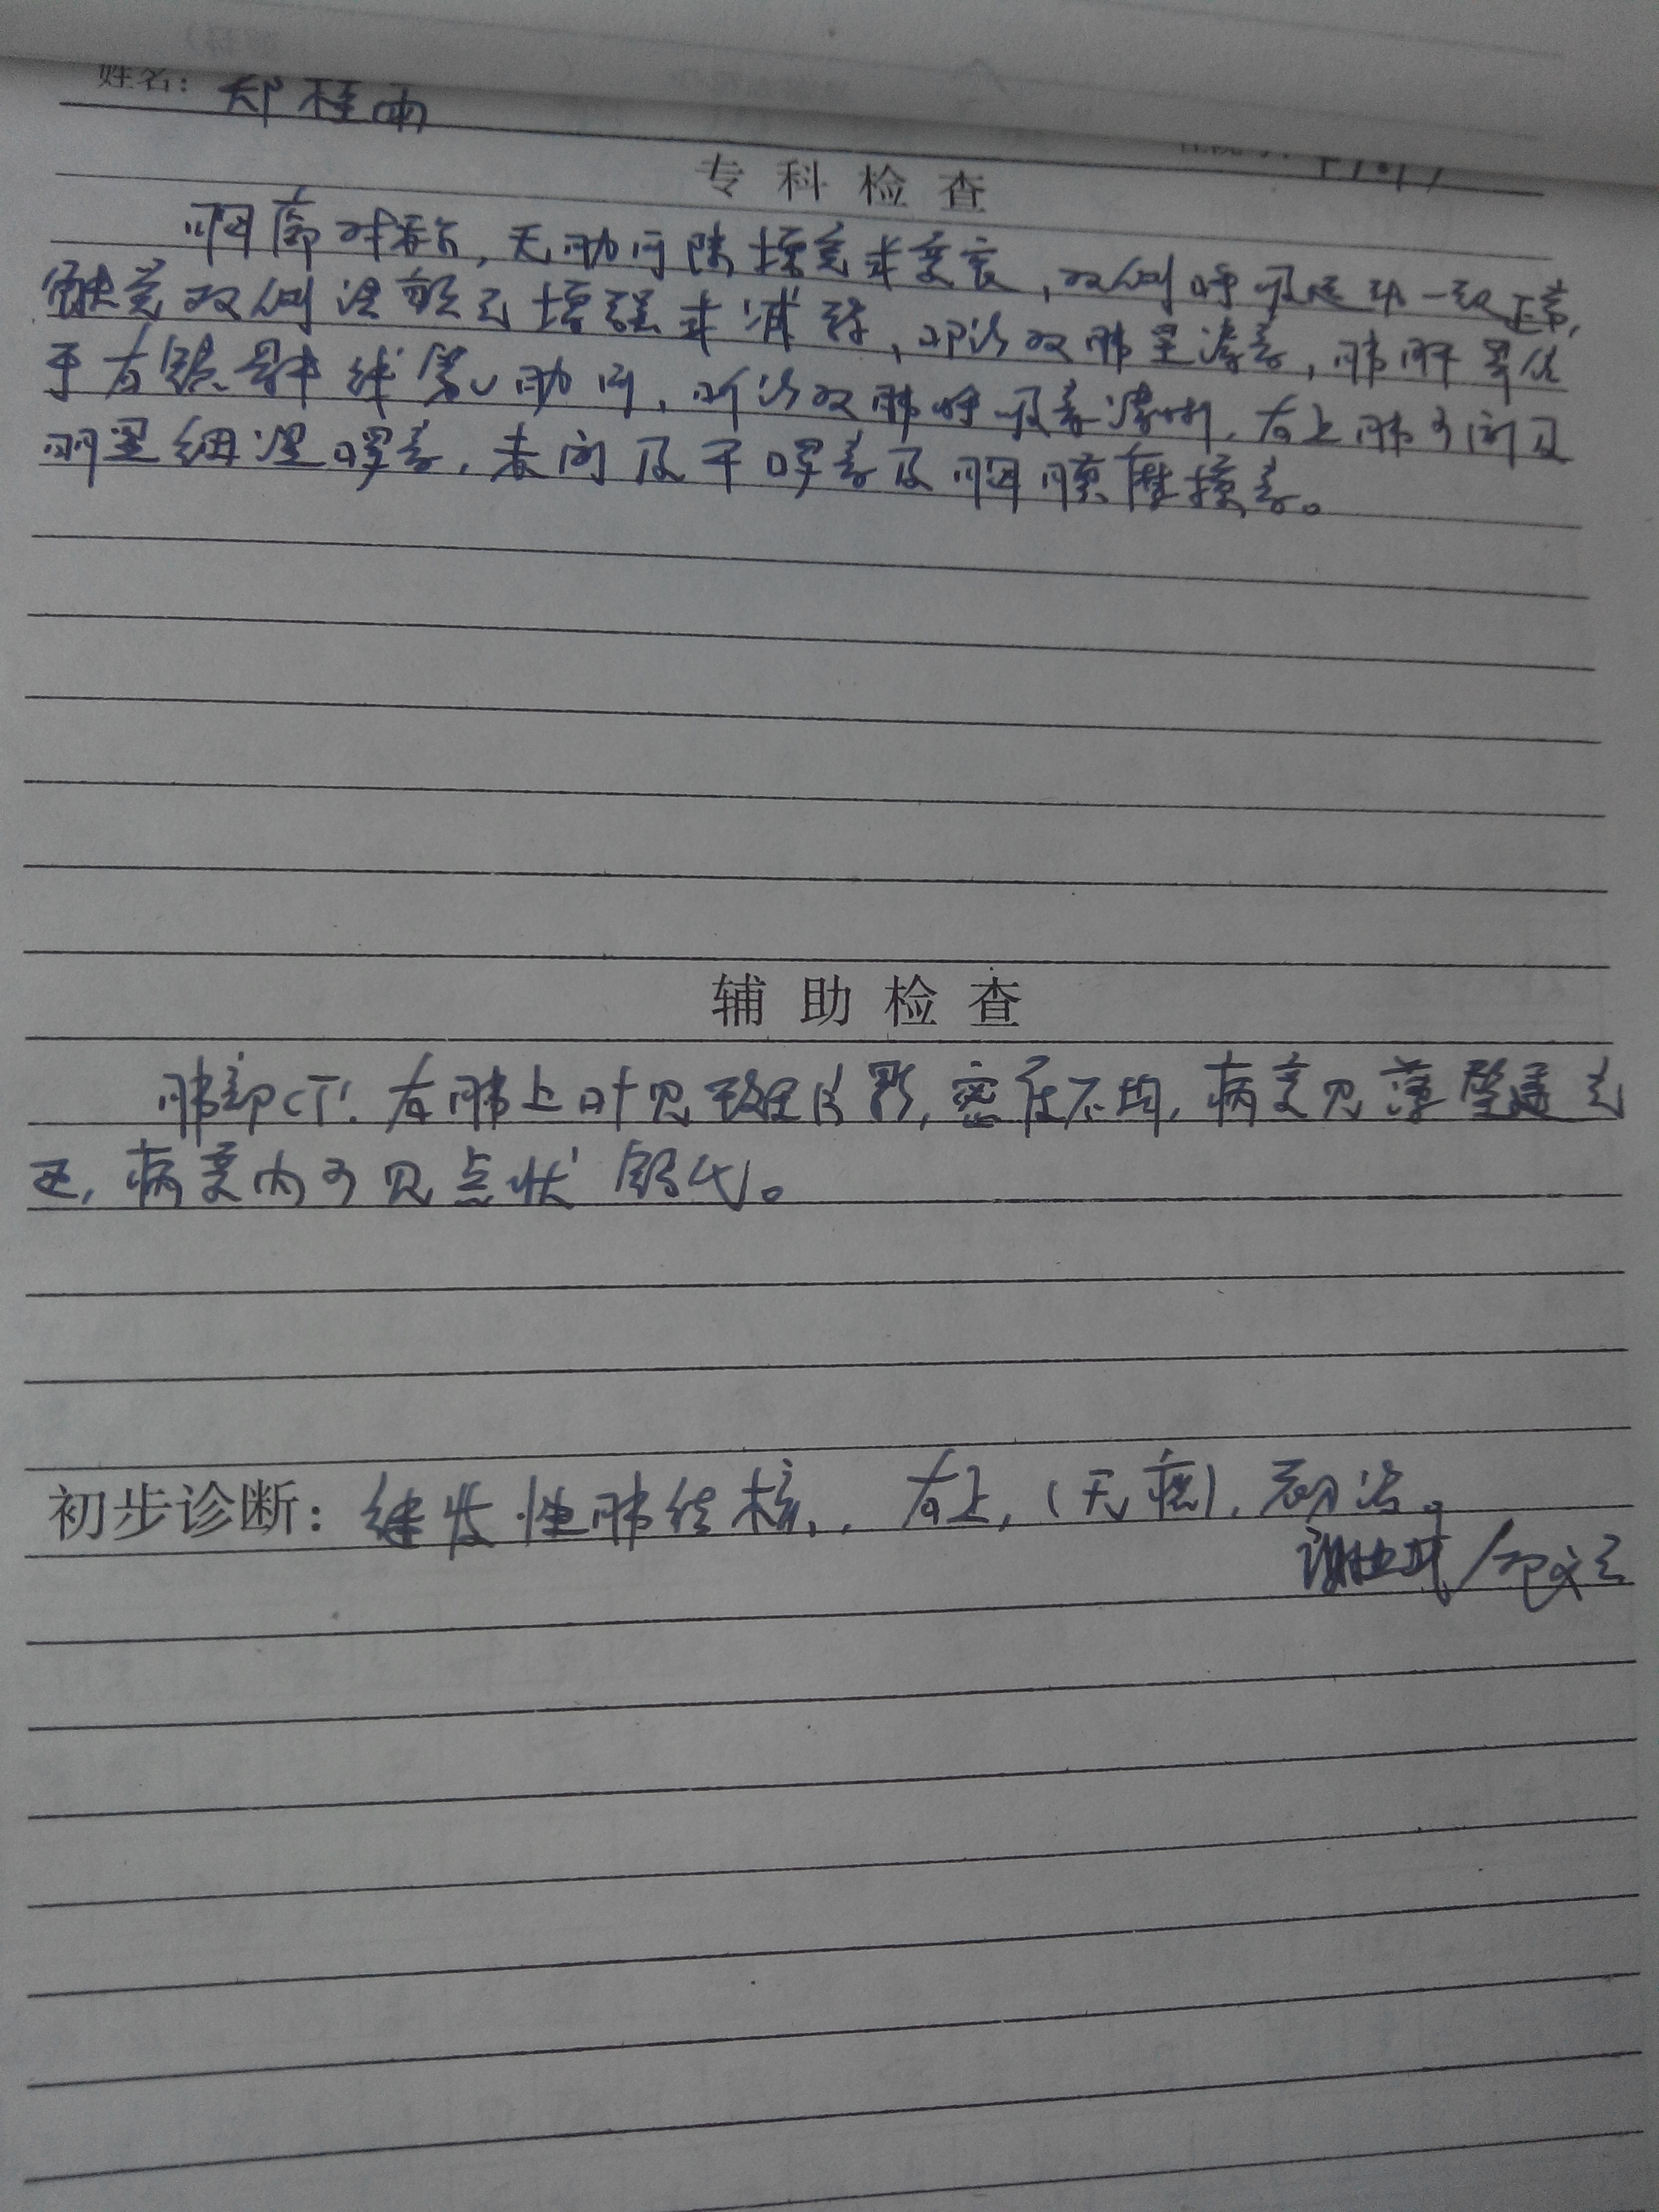 姓名：郑桂雨
专科检查
胸廓对称，无肋间隙增宽或变窄，双侧呼吸运动一致正常，
触觉双侧语颤无增强或减弱，叩诊双肺呈清音，肺肝界位
于右锁骨中线第V肋间，听诊双肺呼吸音清晰，右上肺可闻及
明显细湿啰音，未闻及干啰音及胸膜摩擦音。
辅助检查
肺部CT：右肺上叶见段阴影，密度不均，病变见薄壁透光
区，病变内可见点状钙化。
初步诊断：继发性肺结核，右上，（无痰），初治。